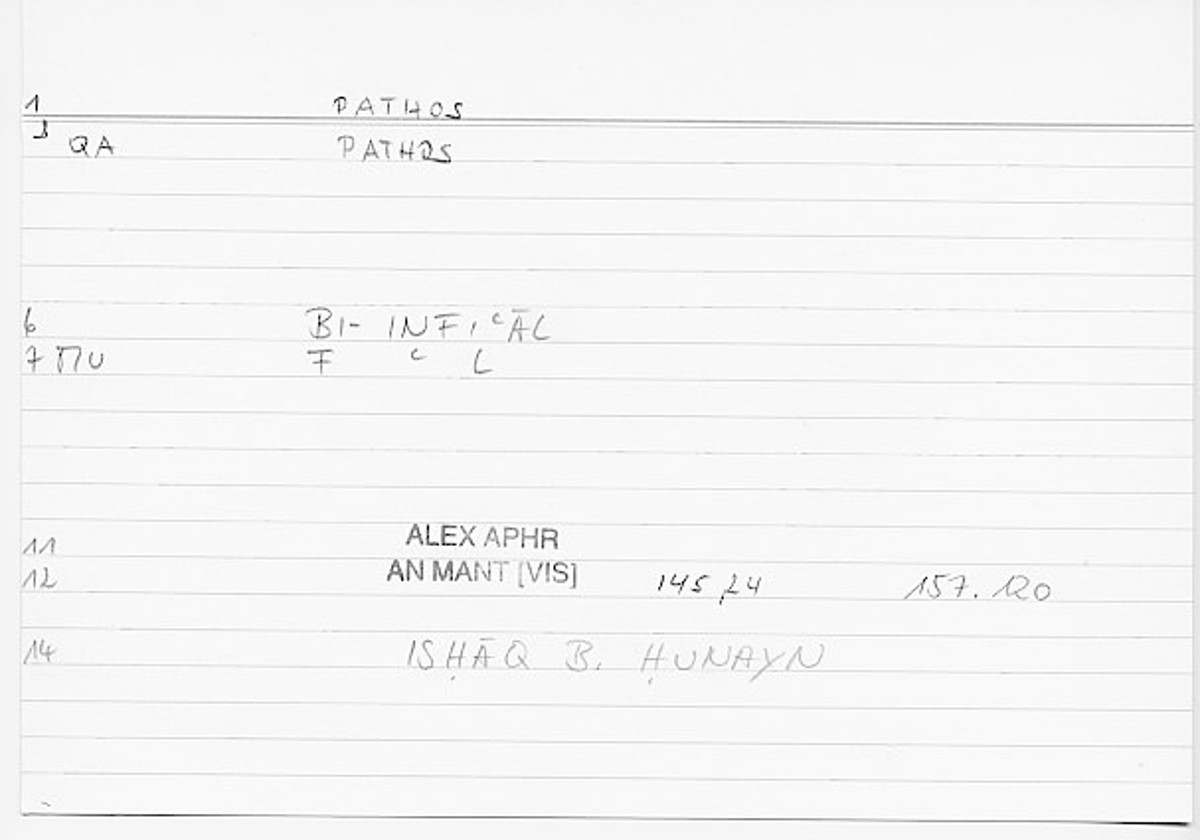 1 PATHOS
3 QA PATHOS
6 BI- INFIʿĀL
7 ΠU F ʿ L
11 ALEX APHR
12 AN MANT [VIS] 145,24 157.120
14 ISḤĀQ B. ḤUNAYN